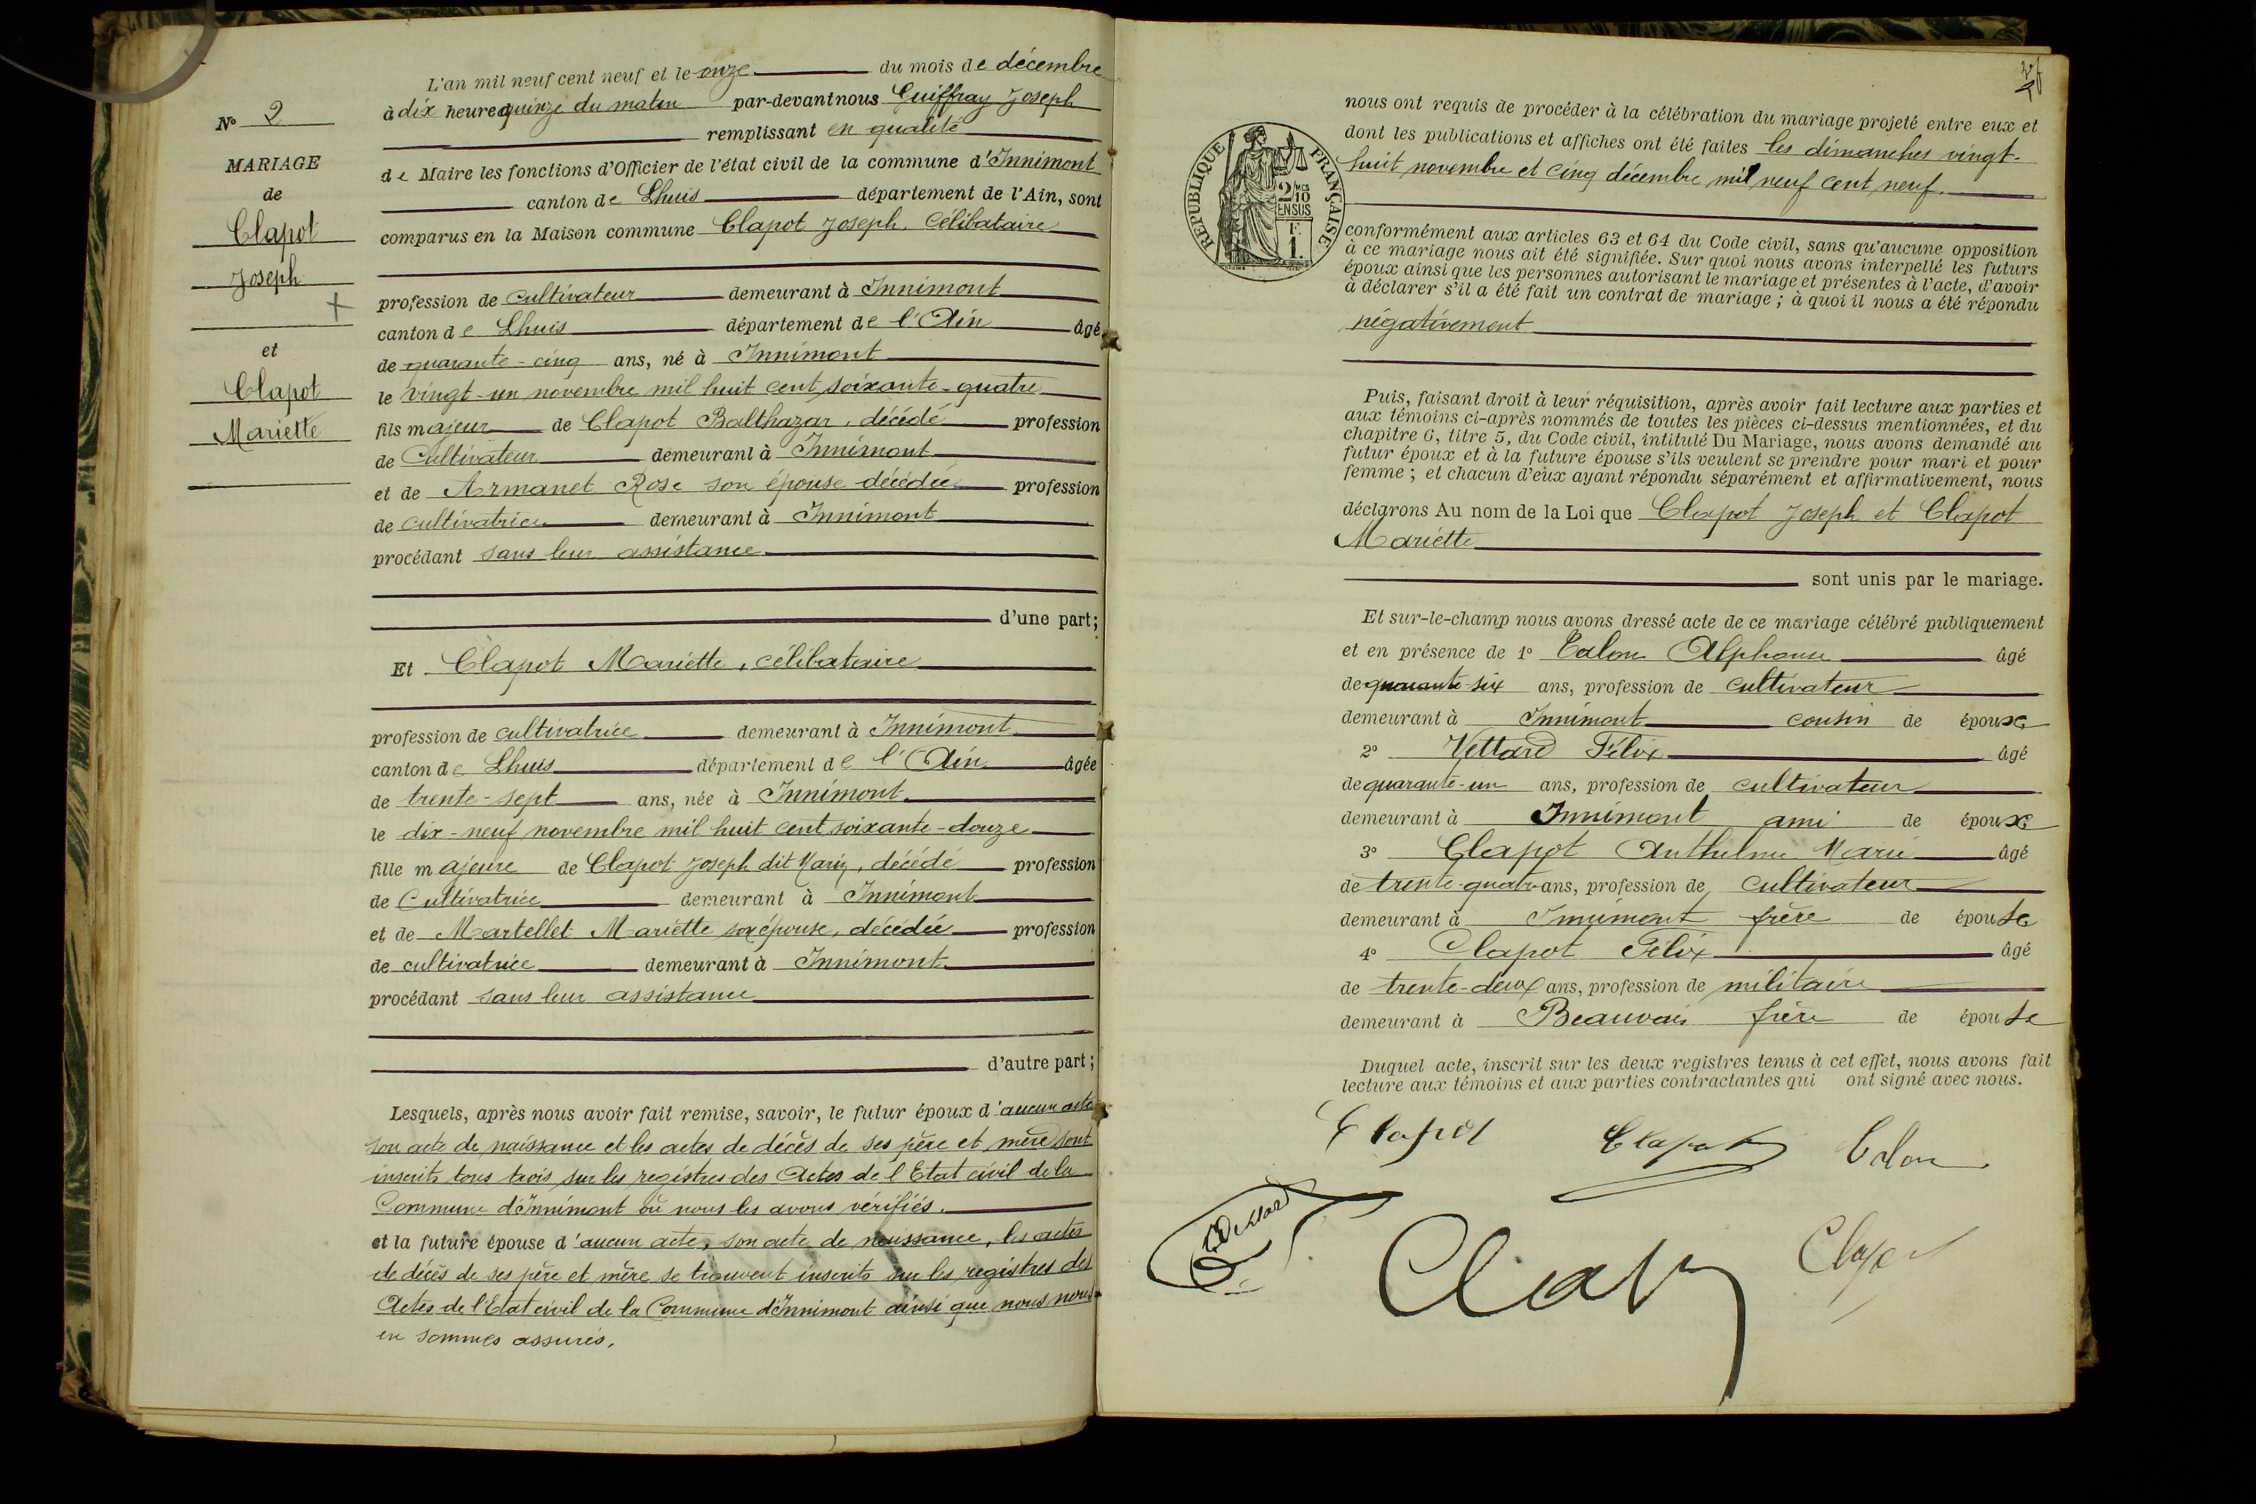 L'an mil neuf cent neuf et le onze du mois de décembre
à dix heures quinze du matin par-devant nous Guiffray Joseph
remplissant en qualité
de Maire les fonctions d'Officier de l'état civil de la commune d'Innimont
canton de Lhuis département de l'Ain, sont
comparus en la Maison commune Clapot Joseph, célibataire
profession de cultivateur demeurant à Innimont
canton de Lhuis département de l'Ain âgé
de quarante-cinq ans, né à Innimont
le vingt-un novembre mil huit cent soixante-quatre
fils majeur de Clapot Balthazar, décédé profession
de Cultivateur demeurant à Innimont
et de Armanet Rose son épouse décédée profession
de cultivatrice demeurant à Innimont
procédant sans leur assistance
d'une part;
Et Clapot Mariette, célibataire
profession de cultivatrice demeurant à Innimont
canton de Lhuis département de l'Ain âgée
de trente-sept ans, née à Innimont
le dix-neuf novembre mil huit cent soixante-douze
fille majeure de Clapot Joseph dit Marin, décédé profession
de Cultivatrice demeurant à Innimont
et de Martellet Mariette son épouse, décédée profession
de cultivatrice demeurant à Innimont
procédant sans leur assistance
d'autre part;
Lesquels, après nous avoir fait remise, savoir, le futur époux d'aucun acte
son acte de naissance et les actes de décès de ses père et mère sont
inscrits tous trois sur les registres des Actes de l'Etat civil de la
Commune d'Innimont où nous les avons vérifiés.
et la future épouse d'aucun acte, son acte de naissance, les actes
de décès de ses père et mère se trouvent inscrits sur les registres des
Actes de l'Etat civil de la Commune d'Innimont ainsi que nous nous
en sommes assurés.
N° 2
MARIAGE
de
Clapot
Joseph
et
Clapot
Mariette
RÉPUBLIQUE FRANÇAISE
2/10
EN SUS
F.
1.
nous ont requis de procéder à la célébration du mariage projeté entre eux et
dont les publications et affiches ont été faites les dimanches vingt-
huit novembre et cinq décembre mil neuf cent neuf.
conformément aux articles 63 et 64 du Code civil, sans qu'aucune opposition
à ce mariage nous ait été signifiée. Sur quoi nous avons interpellé les futurs
époux ainsi que les personnes autorisant le mariage et présentes à l'acte, d'avoir
à déclarer s'il a été fait un contrat de mariage; à quoi il nous a été répondu
négativement
Puis, faisant droit à leur réquisition, après avoir fait lecture aux parties et
aux témoins ci-après nommés de toutes les pièces ci-dessus mentionnées, et du
chapitre 6, titre 5, du Code civil, intitulé Du Mariage, nous avons demandé au
futur époux et à la future épouse s'ils veulent se prendre pour mari et pour
femme; et chacun d'eux ayant répondu séparément et affirmativement, nous
déclarons Au nom de la Loi que Clapot Joseph et Clapot
Mariette
sont unis par le mariage.
Et sur-le-champ nous avons dressé acte de ce mariage célébré publiquement
et en présence de 1° Talon Alphonse âgé
de quarante-six ans, profession de cultivateur
demeurant à Innimont cousin de époux
2° Vettard Félix âgé
de quarante-un ans, profession de cultivateur
demeurant à Innimont ami de époux
3° Clapot Anthelme Marie âgé
de trente-quatre ans, profession de cultivateur
demeurant à Innimont frère de épouse
4° Clapot Félix âgé
de trente-deux ans, profession de militaire
demeurant à Beauvais frère de épouse
Duquel acte, inscrit sur les deux registres tenus à cet effet, nous avons fait
lecture aux témoins et aux parties contractantes qui ont signé avec nous.
Clapot Clapot Talon
Vettard Clapot